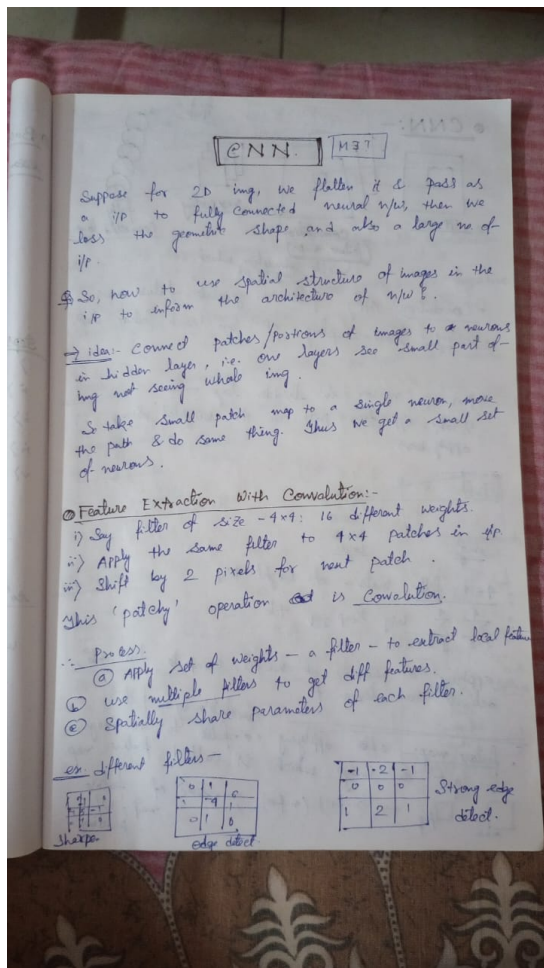 CNN. M37
Suppose for 2D img, we flatten it & pass as
a i/p to fully connected neural n/w, then we
loss the geometric shape and also a large no of
i/p.
So, how to use spatial structure of images in the
i/p to inform the architecture of n/w?
⇒ idea:- Connect patches/portions of images to neurons
in hidden layer, i.e. one layers see small part of
img not seeing whole img.
So take small patch map to a single neuron, move
the path & do same thing. Thus we get a small set
of neurons.
Feature Extraction With Convolution:-
i) Say filter of size - 4x4: 16 different weights.
ii) Apply the same filter to 4x4 patches in i/p.
iii) Shift by 2 pixels for next patch.
This 'patchy' operation is Convolution.
∴ Process.
(a) Apply set of weights - a filter - to extract local feature
(b) use multiple filters to get diff features.
(c) Spatially share parameters of each filter.
ex. different filters—
0 1 0
1 -4 1
0 1 0
-1 -2 -1
0 0 0
1 2 1
Strong edge
detect.
Sharpe.
edge detect.